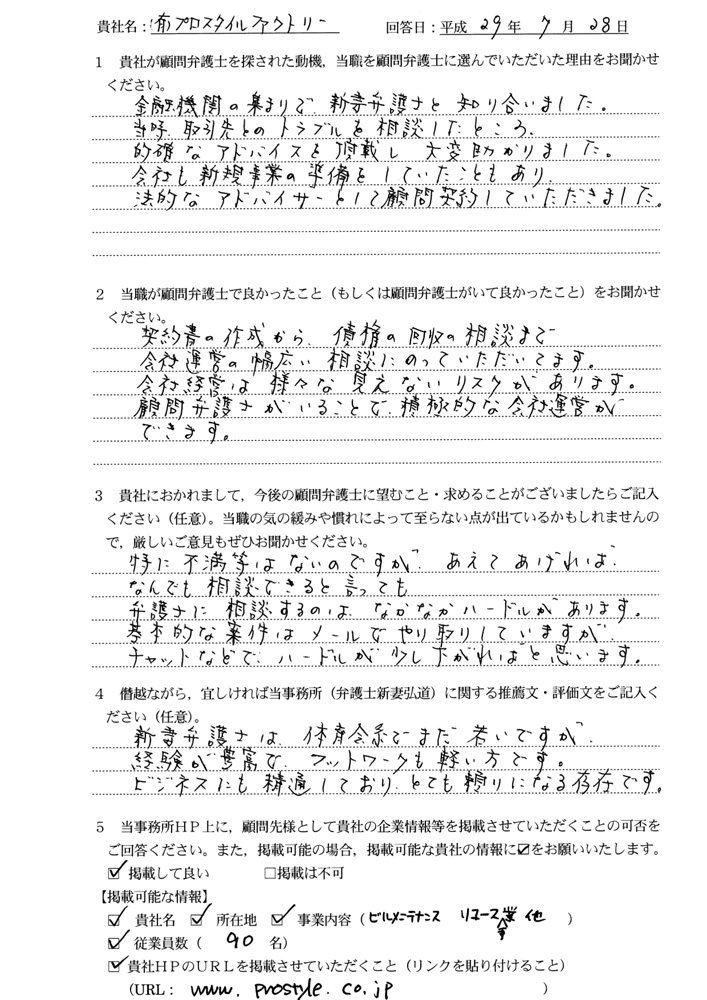 貴社名:(有)プロスタイルファクトリー 回答日:平成 29年 7月 28日
1 貴社が顧問弁護士を探された動機，当職を顧問弁護士に選んでいただいた理由をお聞かせ
ください。
金融機関の集まりで 新妻弁護士と知り合いました。
当時、取引先とのトラブルを相談したところ、
的確なアドバイスを頂戴し 大変助かりました。
会社も新規事業の準備をしていたこともあり、
法的なアドバイザーとして顧問契約していただきました。
2 当職が顧問弁護士で良かったこと（もしくは顧問弁護士がいて良かったこと）をお聞かせ
ください。
契約書の作成から、債権の回収の相談まで
会社運営の幅広い相談にのっていただいてます。
会社経営は様々な見えないリスクがあります。
顧問弁護士がいることで、積極的な会社運営が
できます。
3 貴社におかれまして，今後の顧問弁護士に望むこと・求めることがございましたらご記入
ください（任意）。当職の気の緩みや慣れによって至らない点が出ているかもしれませんの
で，厳しいご意見もぜひお聞かせください。
特に不満等はないのですが、あえてあげれば、
なんでも相談できると言っても
弁護士に相談するのは、なかなかハードルがあります。
基本的な案件はメールでやり取りしていますが、
チャットなどで、ハードルが少し下がればと思います。
4 僭越ながら，宜しければ当事務所（弁護士新妻弘道）に関する推薦文・評価文をご記入く
ださい（任意）。
新妻弁護士は、体育会系でまだ若いですが、
経験が豊富で、フットワークも軽い方です。
ビジネスにも精通しており、とても頼りになる存在です。
5 当事務所ＨＰ上に，顧問先様として貴社の企業情報等を掲載させていただくことの可否を
ご回答ください。また，掲載可能の場合，掲載可能な貴社の情報に☑をお願いいたします。
☑掲載して良い □掲載は不可
【掲載可能な情報】
☑ 貴社名 ☑ 所在地 ☑ 事業内容（ビルメンテナンス リユース事業 他 ）
☑ 従業員数（ 90 名）
☑貴社ＨＰのＵＲＬを掲載させていただくこと（リンクを貼り付けること）
（URL： www.prostyle.co.jp ）